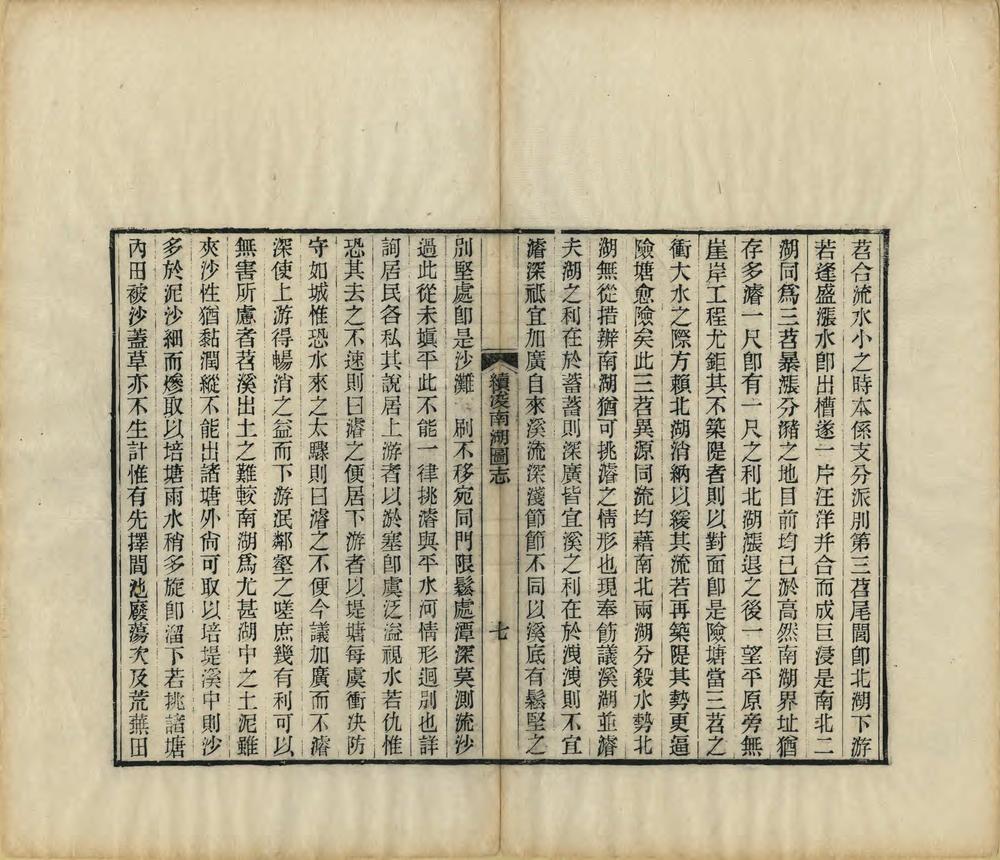 苕合流水小之時本係支分派別第三苕尾閭卽北湖下游
若逢盛漲水卽出槽遂一片汪洋并合而成巨浸是南北二
湖同爲三苕暴漲分瀦之地目前均已淤高然南湖界址猶
存多濬一尺卽有一尺之利北湖漲退之後一望平原旁無
崖岸工程尤鉅其不築隄者則以對面卽是險塘當三苕之
衝大水之際方賴北湖消納以緩其流若再築隄其勢更逼
險塘愈險矣此三苕異源同流均藉南北兩湖分殺水勢北
湖無從措辦南湖猶可挑濬之情形也現奉飭議溪湖並濬
夫湖之利在於蓄蓄則深廣皆宜溪之利在於洩洩則不宜
濬深祗宜加廣自來溪流深淺節節不同以溪底有鬆堅之
續浚南湖圖志
七
別堅處卽是沙灘 刷不移宛同門限鬆處潭深莫測流沙
過此從未塡平此不能一律挑濬與平水河情形迴別也詳
詢居民各私其說居上游者以淤塞卽虞泛溢視水若仇惟
恐其去之不速則曰濬之便居下游者以堤塘每虞衝決防
守如城惟恐水來之太驟則曰濬之不便今議加廣而不濬
深使上游得暢消之益而下游泯鄰壑之嗟庶幾有利可以
無害所慮者苕溪出土之難較南湖爲尤甚湖中之土泥雖
夾沙性猶黏潤縱不能出諸塘外尙可取以培堤溪中則沙
多於泥沙細而燥取以培塘雨水稍多旋卽溜下若挑諸塘
內田被沙蓋草亦不生計惟有先擇間池廢蕩次及荒蕪田